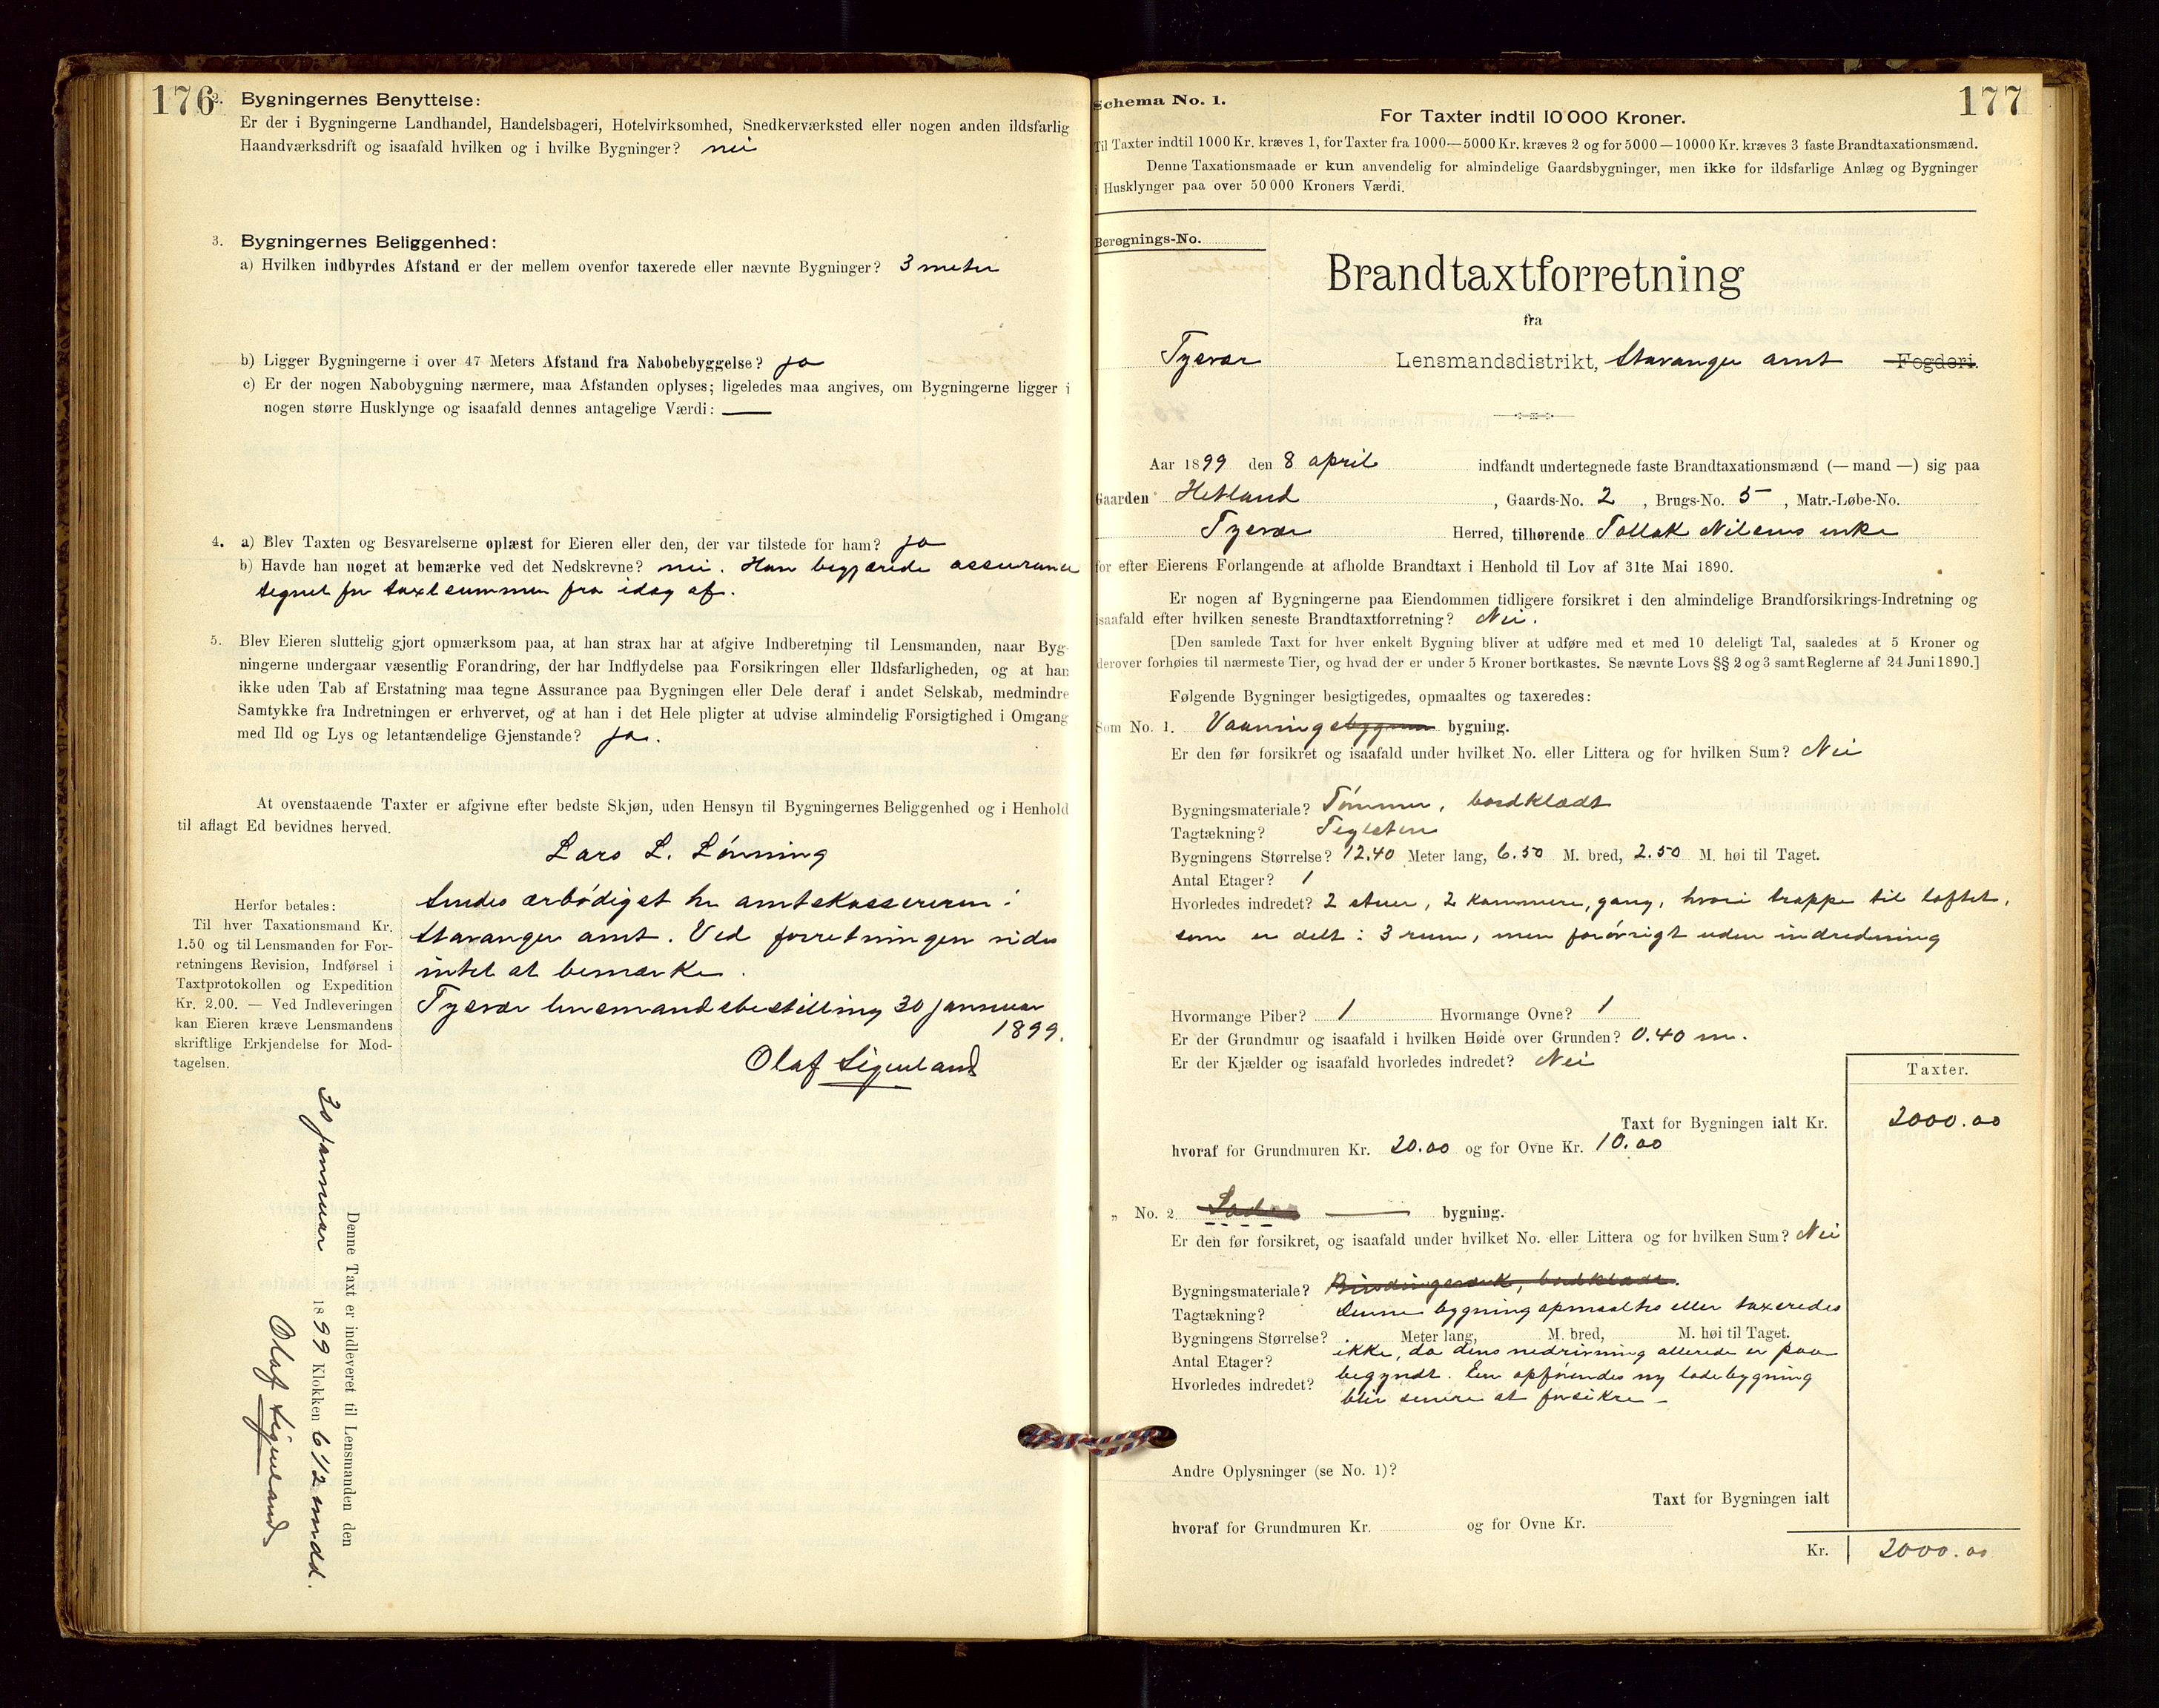 176
2. Bygningernes Benyttelse:
Er der i Bygningerne Landhandel, Handelsbageri, Hotelvirksomhed, Snedkerværksted eller nogen anden ildsfarlig
Haandværksdrift og isaafald hvilken og i hvilke Bygninger? nei
3. Bygningernes Beliggenhed:
a) Hvilken indbyrdes Afstand er der mellem ovenfor taxerede eller nævnte Bygninger? 3 meter
b) Ligger Bygningerne i over 47 Meters Afstand fra Nabobebyggelse? ja
c) Er der nogen Nabobygning nærmere, maa Afstanden oplyses; ligeledes maa angives, om Bygningerne ligger i
nogen større Husklynge og isaafald dennes antagelige Værdi: —
4. a) Blev Taxten og Besvarelserne oplæst for Eieren eller den, der var tilstede for ham? ja
b) Havde han noget at bemærke ved det Nedskrevne? nei. Han begjærede assurance
tegnet for taxtsummen fra idag af.
5. Blev Eieren sluttelig gjort opmærksom paa, at han strax har at afgive Indberetning til Lensmanden, naar Byg-
ningerne undergaar væsentlig Forandring, der har Indflydelse paa Forsikringen eller Ildsfarligheden, og at han
ikke uden Tab af Erstatning maa tegne Assurance paa Bygningen eller Dele deraf i andet Selskab, medmindre
Samtykke fra Indretningen er erhvervet, og at han i det Hele pligter at udvise almindelig Forsigtighed i Omgang
med Ild og Lys og letantændelige Gjenstande? ja.
At ovenstaaende Taxter er afgivne efter bedste Skjøn, uden Hensyn til Bygningernes Beliggenhed og i Henhold
til aflagt Ed bevidnes herved.
Lars L. Lønning
Herfor betales:
Til hver Taxationsmand Kr.
1.50 og til Lensmanden for For-
retningens Revision, Indførsel i
Taxtprotokollen og Expedition
Kr. 2.00. — Ved Indleveringen
kan Eieren kræve Lensmandens
skriftlige Erkjendelse for Mod-
tagelsen.
Sendes ærbødigst hr amtskassereren i
Stavanger amt. Ved forretningen vides
intet at bemærke.
Tysvær lensmandsbestilling 30 januar
1899.
Olaf
Denne Taxt er indleveret til Lensmanden den
30 januar 1899 Klokken 6 1/2 midd.
Olaf
Schema No. 1.
177
For Taxter indtil 10 000 Kroner.
Til Taxter indtil 1000 Kr. kræves 1, for Taxter fra 1000—5000 Kr. kræves 2 og for 5000—10000 Kr. kræves 3 faste Brandtaxationsmænd.
Denne Taxationsmaade er kun anvendelig for almindelige Gaardsbygninger, men ikke for ildsfarlige Anlæg og Bygninger
i Husklynger paa over 50 000 Kroners Værdi.
Beregnings-No.
Brandtaxtforretning
fra
Tysvær Lensmandsdistrikt, Stavanger amt Fogderi.
Aar 1899 den 8 april indfandt undertegnede faste Brandtaxationsmænd (— mand —) sig paa
Gaarden Hetland, Gaards-No. 2, Brugs-No. 5, Matr.-Løbe-No.
Tysvær Herred, tilhørende Tollak Nilsens enke
for efter Eierens Forlangende at afholde Brandtaxt i Henhold til Lov af 31te Mai 1890.
Er nogen af Bygningerne paa Eiendommen tidligere forsikret i den almindelige Brandforsikrings-Indretning og
isaafald efter hvilken seneste Brandtaxtforretning? Nei.
[Den samlede Taxt for hver enkelt Bygning bliver at udføre med et med 10 deleligt Tal, saaledes at 5 Kroner og
derover forhøies til nærmeste Tier, og hvad der er under 5 Kroner bortkastes. Se nævnte Lovs §§ 2 og 3 samt Reglerne af 24 Juni 1890.]
Følgende Bygninger besigtigedes, opmaaltes og taxeredes:
Som No. 1. Vaanings bygning.
Er den før forsikret og isaafald under hvilket No. eller Littera og for hvilken Sum? Nei
Bygningsmateriale? Tømmer, bordklædt
Tagtækning? Teglsten
Bygningens Størrelse? 12.40 Meter lang, 6.50 M. bred, 2.50 M. høi til Taget.
Antal Etager? 1
Hvorledes indredet? 2 stuer, 2 kammere, gang, hvori trappe til loftet,
som er delt i 3 rum, men forøvrigt uden indredning
Hvormange Piber? 1 Hvormange Ovne? 1
Er der Grundmur og isaafald i hvilken Høide over Grunden? 0.40 m.
Er der Kjælder og isaafald hvorledes indredet? Nei
Taxter.
Taxt for Bygningen ialt Kr. 2000.00
hvoraf for Grundmuren Kr. 20.00 og for Ovne Kr. 10.00
„ No. 2. Lade — bygning.
Er den før forsikret, og isaafald under hvilket No. eller Littera og for hvilken Sum? Nei
Bygningsmateriale? Bindingsverk, bordklædt.
Tagtækning? Denne bygning opmaaltes eller taxeredes
Bygningens Størrelse? Meter lang, M. bred, M. høi til Taget.
ikke, da dens nedrivning allerede er paa
Antal Etager?
Hvorledes indredet? begyndt. En opførendes ny ladebygning
blir senere at forsikre —
Andre Oplysninger (se No. 1)?
Taxt for Bygningen ialt
hvoraf for Grundmuren Kr. og for Ovne Kr.
Kr. 2000.00